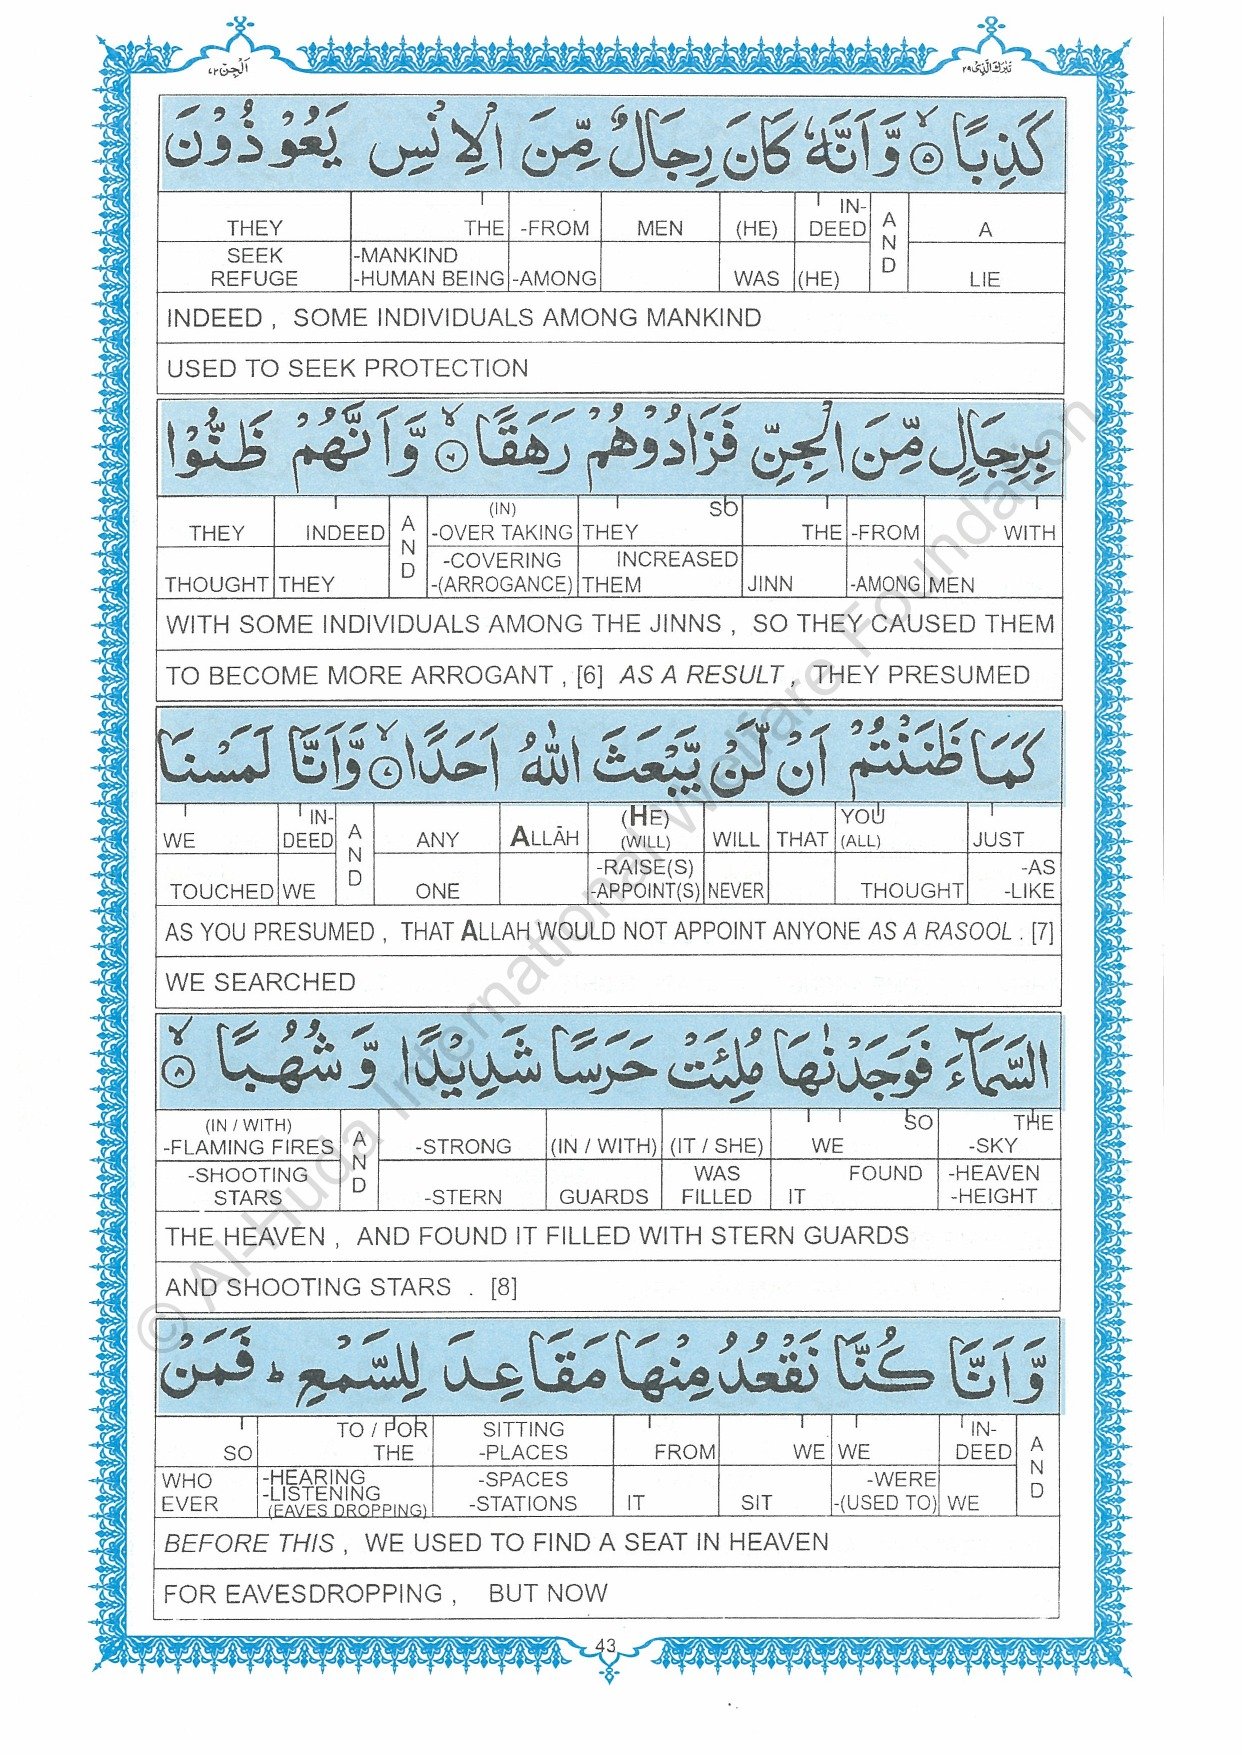 اَلْجِنّ ٧٢
تَبٰرَكَ الَّذِىْ ٢٩
كَذِبًا ۙ﴿۵﴾ وَّ اَنَّهٗ كَانَ رِجَالٌ مِّنَ الْاِنْسِ يَعُوْذُوْنَ
THEY THE -FROM MEN (HE) IN-DEED AND A
SEEK REFUGE -MANKIND -HUMAN BEING -AMONG WAS (HE) LIE
INDEED , SOME INDIVIDUALS AMONG MANKIND
USED TO SEEK PROTECTION
بِرِجَالٍ مِّنَ الْجِنِّ فَزَادُوْهُمْ رَهَقًا ۙ﴿۶﴾ وَّ اَنَّهُمْ ظَنُّوْا
THEY INDEED AND (IN) -OVER TAKING THEY SO THE -FROM WITH
THOUGHT THEY -COVERING -(ARROGANCE) INCREASED THEM JINN -AMONG MEN
WITH SOME INDIVIDUALS AMONG THE JINNS , SO THEY CAUSED THEM
TO BECOME MORE ARROGANT , [6] AS A RESULT , THEY PRESUMED
كَمَا ظَنَنْتُمْ اَنْ لَّنْ يَّبْعَثَ اللّٰهُ اَحَدًا ۙ﴿۷﴾ وَّ اَنَّا لَمَسْنَا
WE IN-DEED AND ANY ALLĀH (HE) (WILL) WILL THAT YOU (ALL) JUST
TOUCHED WE ONE -RAISE(S) -APPOINT(S) NEVER THOUGHT -AS -LIKE
AS YOU PRESUMED , THAT ALLAH WOULD NOT APPOINT ANYONE AS A RASOOL . [7]
WE SEARCHED
السَّمَآءَ فَوَجَدْنٰهَا مُلِئَتْ حَرَسًا شَدِيْدًا وَّ شُهُبًا ۙ﴿۸﴾
(IN / WITH) -FLAMING FIRES AND -STRONG (IN / WITH) (IT / SHE) WE SO THE -SKY
-SHOOTING STARS -STERN GUARDS WAS FILLED FOUND IT -HEAVEN -HEIGHT
THE HEAVEN , AND FOUND IT FILLED WITH STERN GUARDS
AND SHOOTING STARS . [8]
وَّ اَنَّا كُنَّا نَقْعُدُ مِنْهَا مَقَاعِدَ لِلسَّمْعِ ؕ فَمَنْ
SO TO / FOR THE SITTING -PLACES FROM WE WE IN-DEED AND
WHO EVER -HEARING -LISTENING (EAVES DROPPING) -SPACES -STATIONS IT SIT -WERE -(USED TO) WE
BEFORE THIS , WE USED TO FIND A SEAT IN HEAVEN
FOR EAVESDROPPING , BUT NOW
43
© Al-Huda International Welfare Foundation